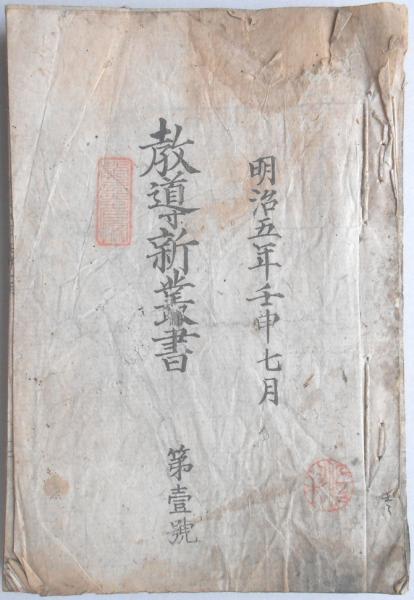 明治五年壬申七月
教導新叢書
第壹號